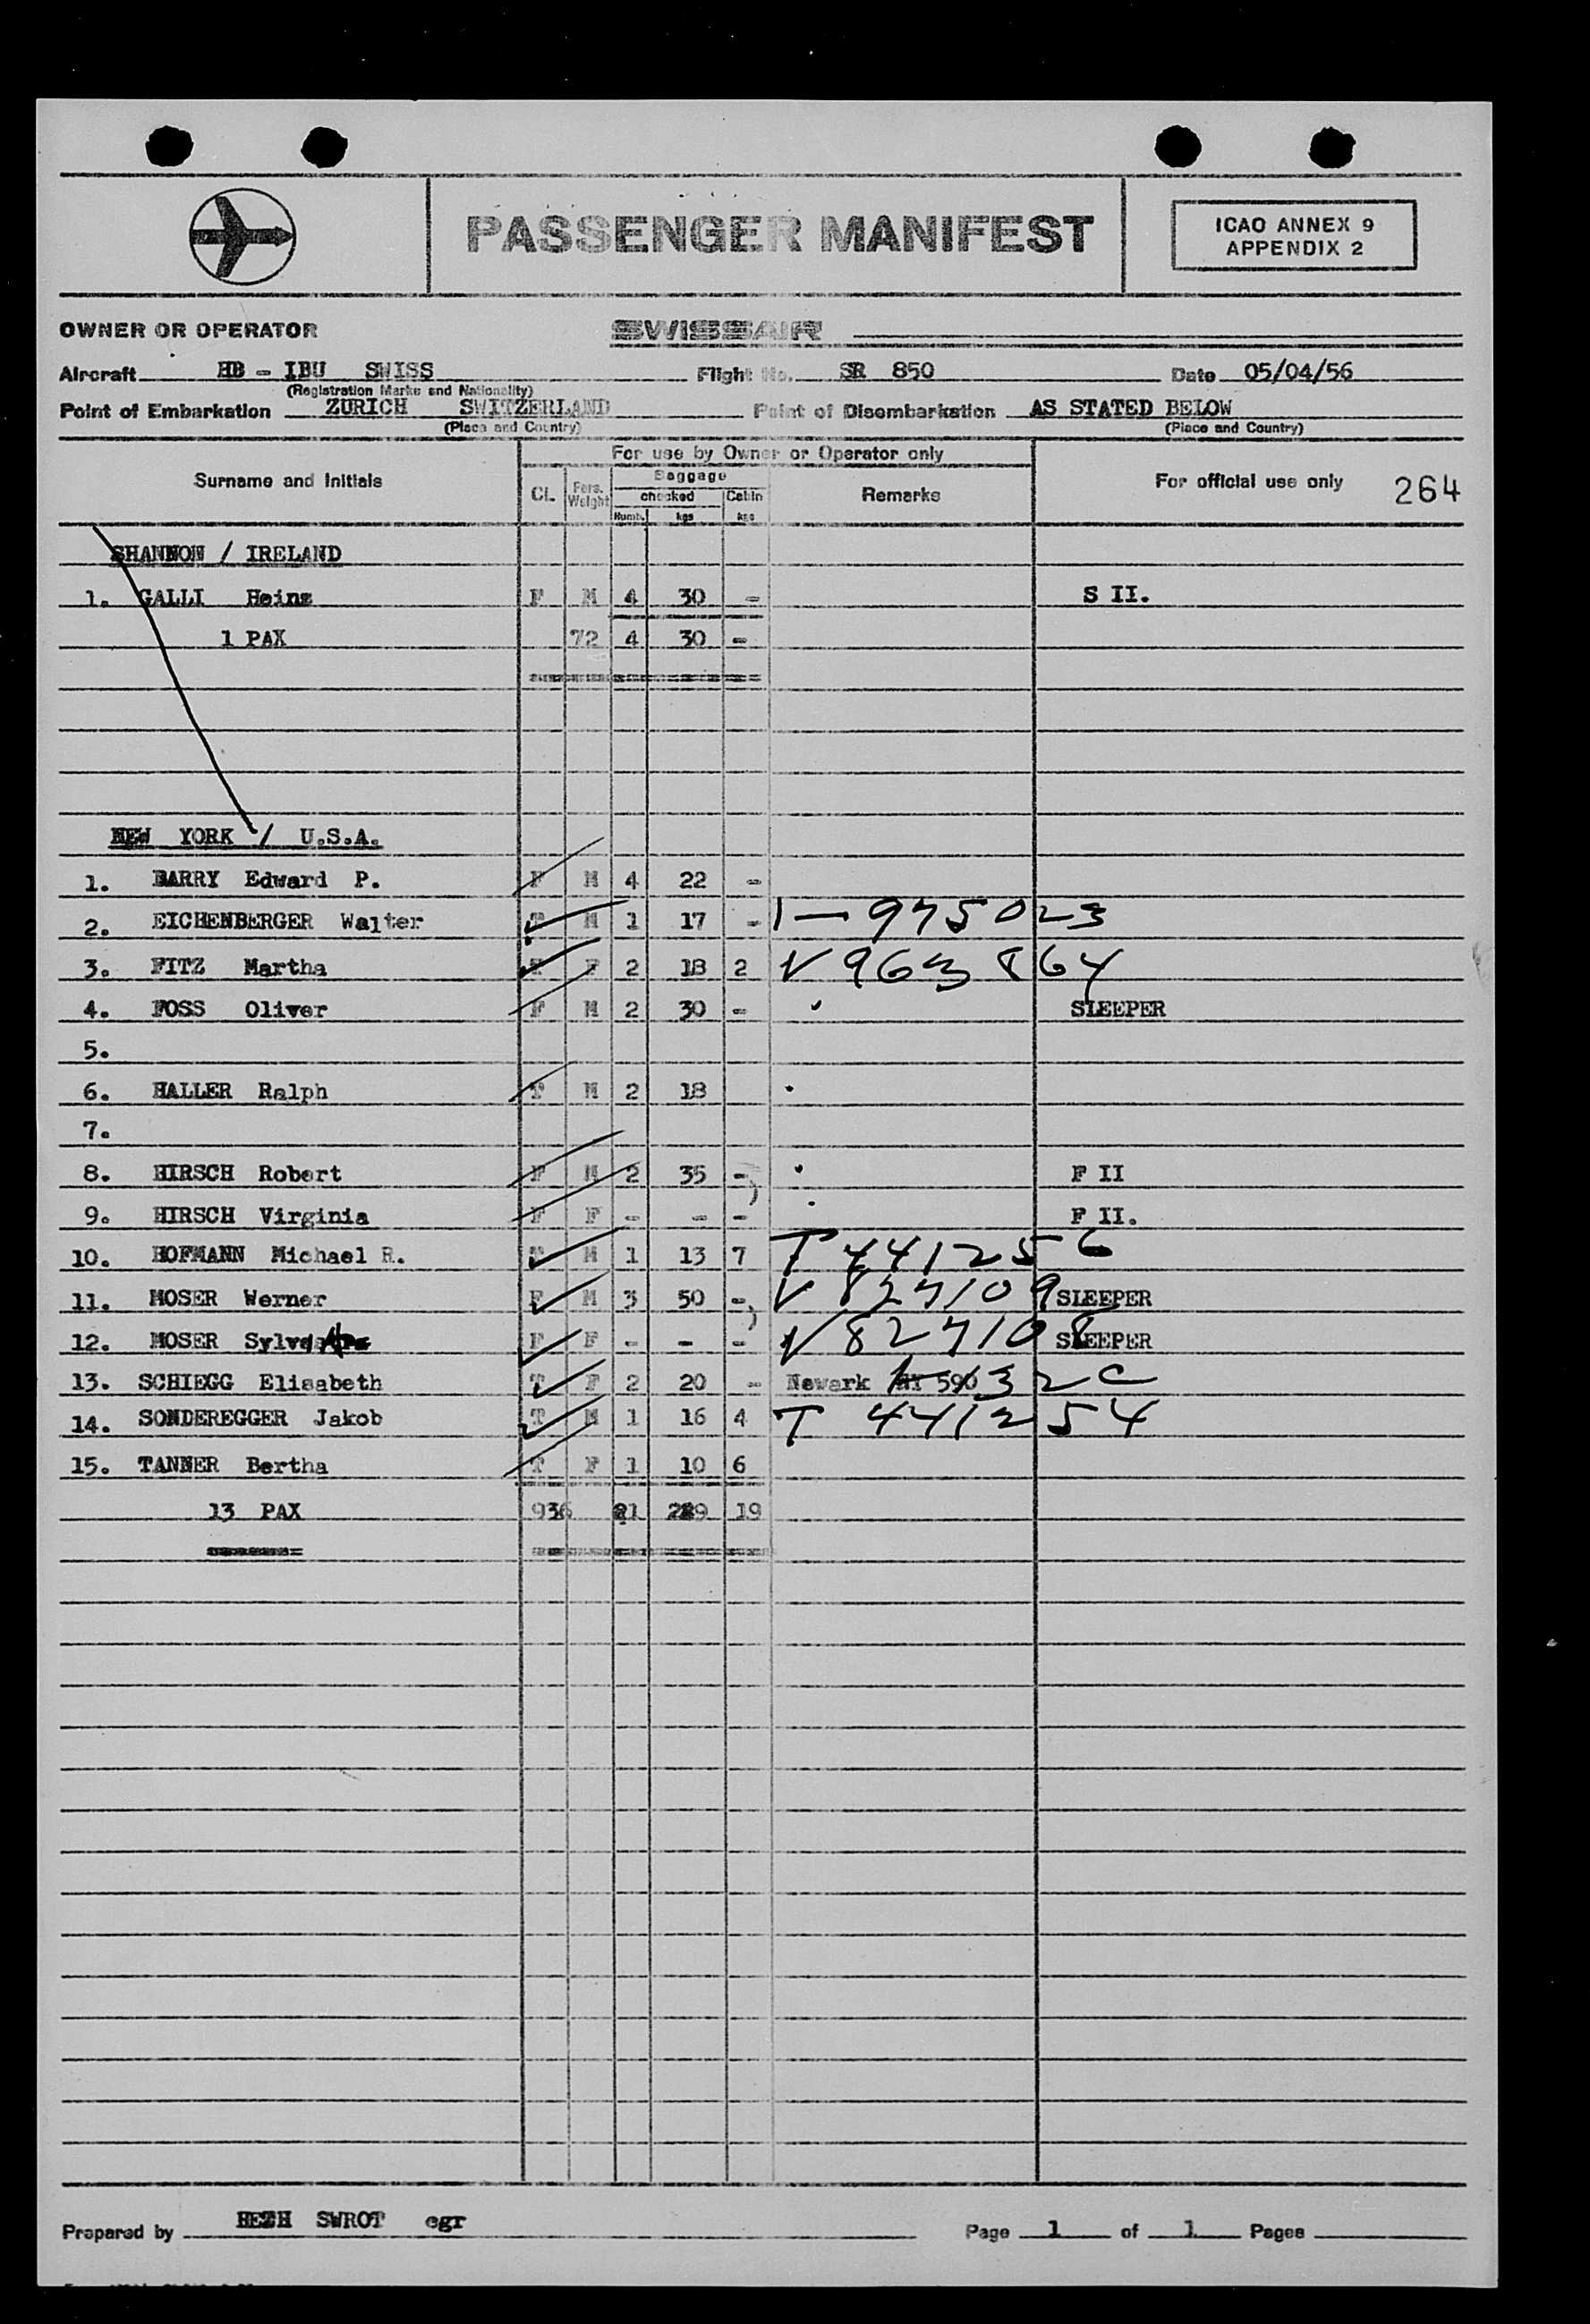 PASSENGER MANIFEST
ICAO ANNEX 9
APPENDIX 2
OWNER OR OPERATOR SWISSAIR
Aircraft HB - IBU SWISS Flight No. SR 850 Date 05/04/56
(Registration Marks and Nationality)
Point of Embarkation ZURICH SWITZERLAND Point of Disembarkation AS STATED BELOW
(Place and Country) (Place and Country)
For use by Owner or Operator only
Surname and Initials Cl. Pers. Weight Baggage checked Cabin Remarks For official use only 264
Numb. kgs kgs
SHANNON / IRELAND
1. GALLI Heinz F M 4 30 - S II.
1 PAX 72 4 30 -
NEW YORK / U.S.A.
1. BARRY Edward P. F M 4 22 -
2. EICHENBERGER Walter T M 1 17 - I - 975023
3. FITZ Martha T F 2 18 2 V 963864
4. FOSS Oliver F M 2 30 - SLEEPER
5.
6. HALLER Ralph T M 2 18
7.
8. HIRSCH Robert F M 2 35 -) F II
9. HIRSCH Virginia F F - - - F II.
10. HOFMANN Michael R. T M 1 13 7 T 441256
11. MOSER Werner F M 3 50 -) V 827109 SLEEPER
12. MOSER F F - - - V 827108 SLEEPER
13. SCHIEGG Elisabeth T F 2 20 - Newark NY 590 32C
14. SONDEREGGER Jakob T M 1 16 4 T 441254
15. TANNER Bertha T F 1 10 6
13 PAX 936 21 19
Prepared by SWROT egr Page 1 of 1 Pages